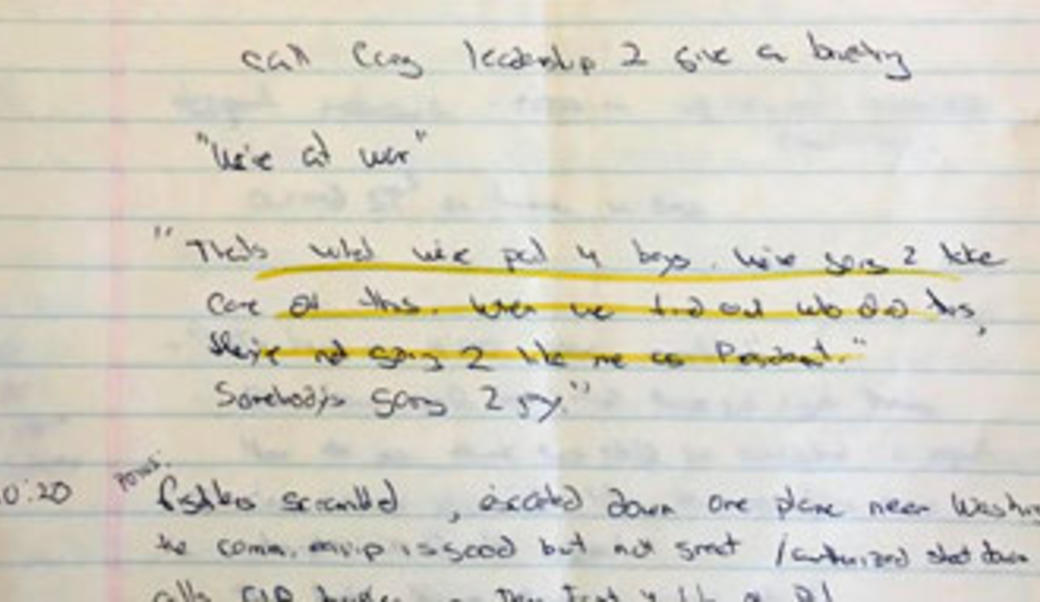 call Cong leadership 2 give a briefing
"We're at war"
"Thats what we're paid 4 boys. We're going 2 take
care of this. When we find out who did this,
they're not going 2 like me as President."
Somebody's going 2 pay."
0:20 POTUS: fighters scrambled, escorted down one plane near Washin
the comm. equip is good but not great / authorized shot down
calls